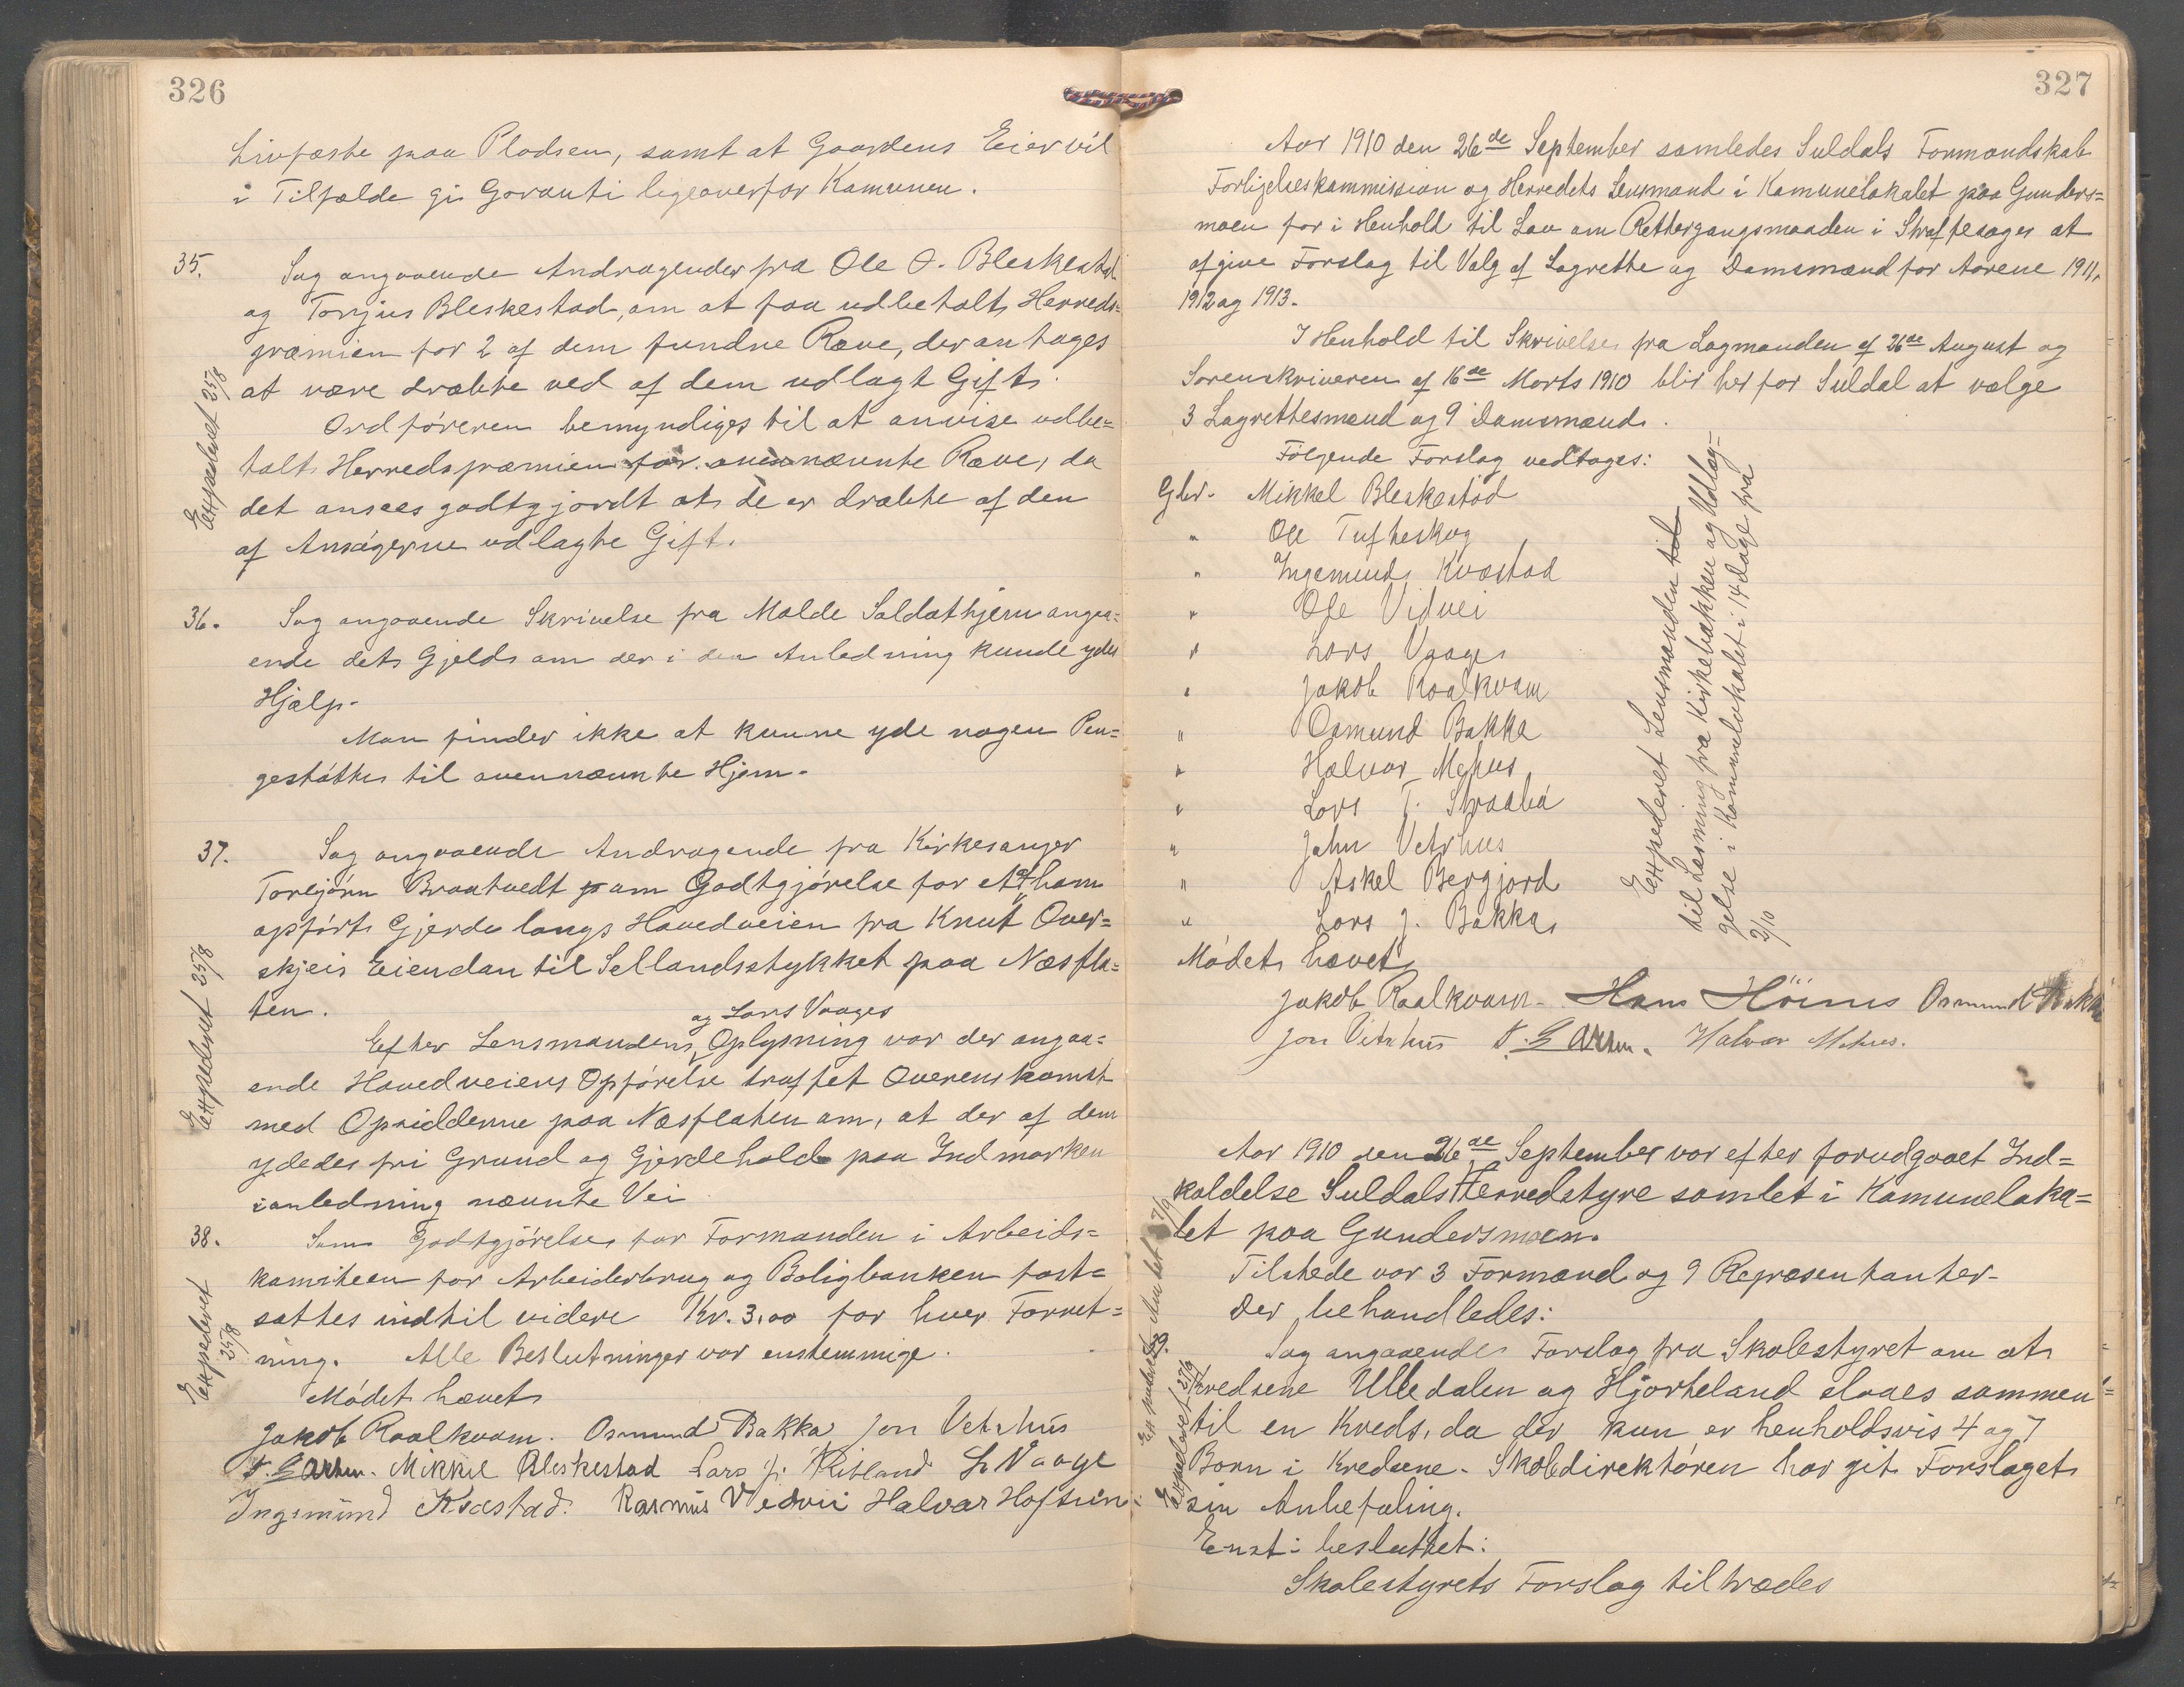 326
Livfæste paa Pladsen, samt at Gaardens Eier vil
i Tilfælde gi Garanti ligeoverfor Kamunen.
35. Sag angaaende Andragender fra Ole O. Bleskestad
og Torjus Bleskestad, om at faa udbetalt Herreds-
præmien for 2 af dem fundne Ræve, der antages
at være dræbte ved af dem udlagt Gift.
Expederet 25/8
Ordføreren bemyndiges til at anvise udbe=
talt Herredspræmien for ovennævnte Ræve, da
det ansees godtgjordt at de er dræbte af den
af Ansøgerne udlagte Gift.
36. Sag angaaende Skrivelse fra Malde Saldathjem angaa=
ende dets Gjeld om der i den Anledning kunde ydes
Hjælp.
Man finder ikke at kunne yde nogen Pen=
gestøtte til ovennævnte Hjem.
37. Sag angaaende Andragende fra Kirkesanger
Torbjørn Braatvedt om Godtgjørelse for At ham
opført Gjerde langs Hovedveien fra Knut Over=
skjeis Eiendan til Sellandsstykket paa Næsfla=
ten.
Expederet 25/8
og Lars Vaages
Efter Lensmandens Oplysning var der angaa=
ende Hovedveiens Opførelse truffet Overenskomst
med Opsidderne paa Næsflaten om, at der af dem
ydedes fri Grund og Gjerdehold paa Indmarken
i anledning nævnte Vei
38. Som Godtgjørelse for Formanden i Arbeids=
kamiteen for Arbeiderbrug og Boligbanken fast=
sattes indtil videre Kr. 3,00 for hver Forret=
ning. Alle Beslutninger var enstemmige.
Expederet 25/8
Mødet hævet
Jakob Raalkvam. Osmund Bakka Jon Vetrhus
Mikkel Bleskestad Lars J. Ritland L Vaage
Ingemund Kvæstad. Rasmus Vidvei Halvar Hoftun
327
Aar 1910 den 26de September samledes Suldals Formandskab
Forligelseskammission og Herredets Lensmand i Kamunelokalet paa Gunders=
moen for i Henhold til Lov om Rettergangsmaaden i Straffesager at
afgive Forslag til Valg af Lagrette og Domsmænd for Aarene 1911,
1912 og 1913.
I Henhold til Skrivelse fra Lagmanden af 26de August og
Sorenskriveren af 16de Marts 1910 blir her for Suldal at vælge
3 Lagrettesmænd og 9 Damsmænd.
Følgende Forslag vedtages:
Gbr. Mikkel Bleskestad
" Ole Tufteskog
" Ingemund Kvæstad
" Ole Vidvei
" Lars Vaage
" Jakob Raalkvam
" Osmund Bakka
" Halvar Mehus
" Lars T. Straabø
" Jahn Vetrhus
" Askel Bergjord
" Lars J. Bakka
Expederet Lensmanden til
til Læsning fra Kirkebakken og Udlæg=
gelse i Kommelokalet i 14 dage fra
2/10
Mødet hævet
Jakob Raalkvam. Hans Höines Osmund Bakka
Jon Vetrhus Halvar Mehus.
Aar 1910 den 26de September var efter forudgaaet Ind=
kaldelse Suldals Herredstyre samlet i Kamunelaka=
let paa Gundersmoen.
Tilstede var 3 Formænd og 9 Repræsentanter.
Der behandledes:
39. Sag angaaende Forslag fra Skolestyret om at
Kredsene Ulledalen og Hjorteland slaaes sammen
til en Kreds, da der kun er henholdsvis 4 og 7
Børn i Kredsene. Skoledirektøren har git Forslaget
sin Anbefaling.
Expederet 27/9
Enst. besluttet:
Skolestyrets Forslag tiltrædes